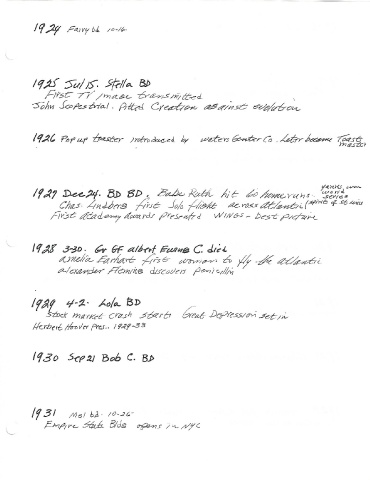 1924 Fairy bd 10-16
1925 Jul 15. Stella BD
First TV image transmitted
John Scopes trial. Pitted Creation against evolution
1926 Pop up toaster introduced by waters Genter Co. Later became Toast
master
1927 Dec 24. BD BD. Babe Ruth hit 60 home runs. Yanks won
word
series
Chas. Lindberg first solo flight across Atlantic (Spirit of St Louis
First Academy awards presented WINGS - Best picture
1928 3-30. Gr GF Albert Evans C. died
Amelia Earhart first woman to fly the atlantic
Alexander Fleming discovers penicillin
1929 4-2. Lola BD
Stock market crash starts Great Depression set in
Herbert Hoover Pres. 1929-33
1930 Sep 21 Bob C. BD
1931 Mel bd. 10-25
Empire State Bldg opens in NYC